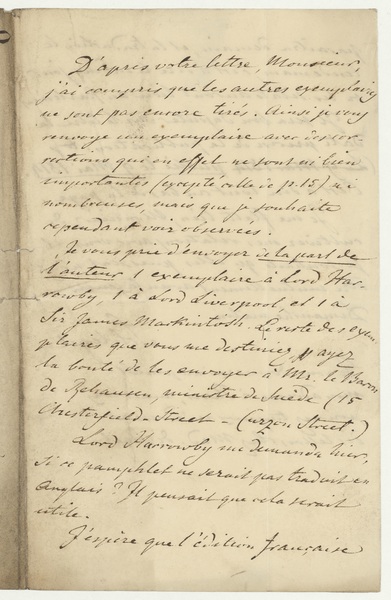 D'après votre lettre, Monsieur,
j'ai compris que les autres exemplaires
ne sont pas encore tirés. Ainsi je vous
renvoye un exemplaire avec des cor-
rections qui en effet ne sont ni bien
importantes (excepté celle de p. 15) ni
nombreuses, mais que je souhaite
cependant voir observées.
Je vous prie d'envoyer de la part de
l'auteur 1 exemplaire à Lord Har-
rowby, 1 à Lord Liverpool, et 1 à
Sir James Mackintosh. Le reste des exem-
plaires que vous me destiniez, ayez
la bonté de les envoyer à Mr. le Baron
de Rehausen, ministre de Suède (15
Chesterfield-Street - Curzon Street.)
Lord Harrowby me demanda hier,
si ce pamphlet ne serait pas traduit en
Anglais? Il pensait que cela serait
utile.
J'espère que l'édition française